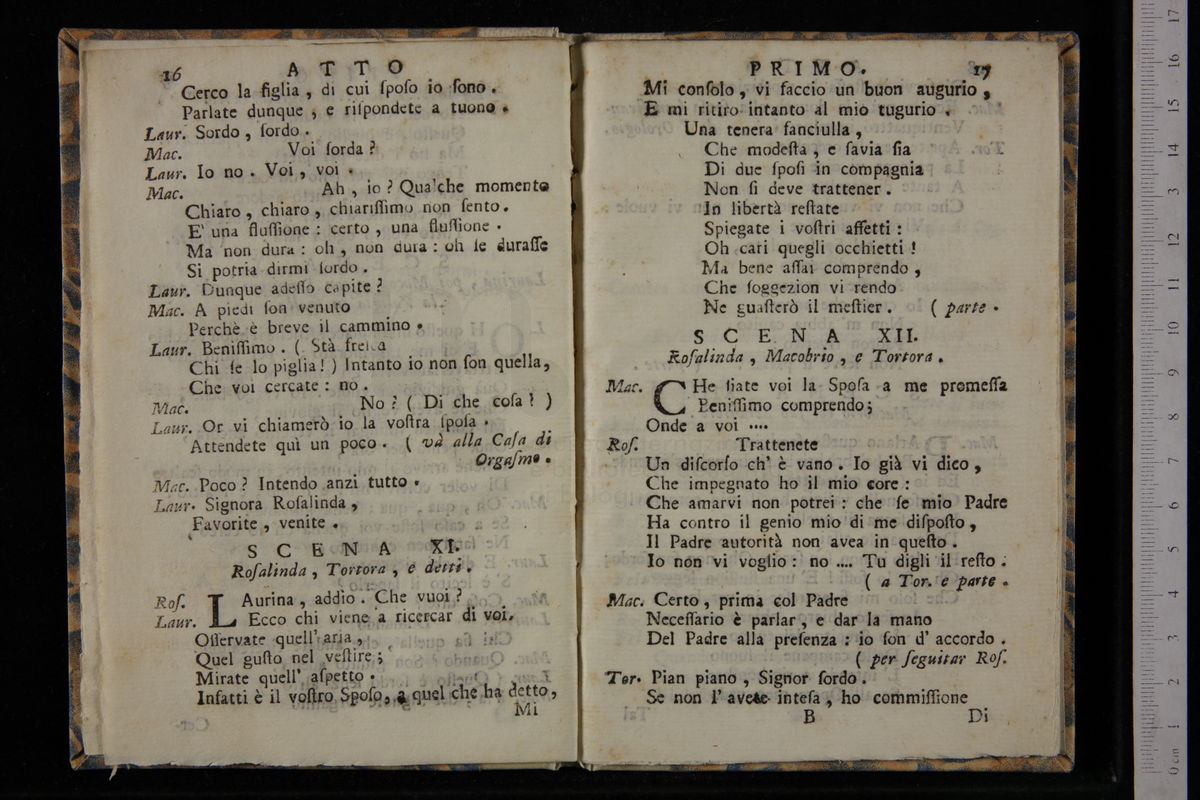 16 ATTO
Cerco la figlia, di cui ſpoſo io ſono.
Parlate dunque, e riſpondete a tuono.
Laur. Sordo, ſordo.
Mac. Voi ſorda?
Laur. Io no. Voi, voi.
Mac. Ah, io? Qualche momento
Chiaro, chiaro, chiariſſimo non ſento.
E' una fluſſione: certo, una fluſſione.
Ma non dura: oh, non dura: oh ſe duraſſe
Si potria dirmi ſordo.
Laur. Dunque adeſſo capite?
Mac. A piedi ſon venuto
Perchè è breve il cammino.
Laur. Beniſſimo. (Stà freſca
Chi ſe lo piglia!) Intanto io non ſon quella,
Che voi cercate: no.
Mac. No? (Di che coſa?)
Laur. Or vi chiamerò io la voſtra ſpoſa.
Attendete quì un poco. (và alla Caſa di
Orgaſmo.
Mac. Poco? Intendo anzi tutto.
Laur. Signora Roſalinda,
Favorite, venite.
SCENA XI.
Roſalinda, Tortora, e detti.
Roſ. LAurina, addio. Che vuoi?
Laur. Ecco chi viene a ricercar di voi.
Oſſervate quell' aria,
Quel guſto nel veſtire;
Mirate quell' aſpetto.
Infatti è il voſtro Spoſo, a quel che ha detto,
Mi
PRIMO. 17
Mi conſolo, vi faccio un buon augurio,
E mi ritiro intanto al mio tugurio.
Una tenera fanciulla,
Che modeſta, e ſavia ſia
Di due ſpoſi in compagnia
Non ſi deve trattener.
In libertà reſtate
Spiegate i voſtri affetti:
Oh cari quegli occhietti!
Ma bene aſſai comprendo,
Che ſoggezion vi rendo
Ne guaſterò il meſtier. (parte.
SCENA XII.
Roſalinda, Macobrio, e Tortora.
Mac. CHe ſiate voi la Spoſa a me promeſſa
Beniſſimo comprendo;
Onde a voi ....
Roſ. Trattenete
Un diſcorſo ch' è vano. Io già vi dico,
Che impegnato ho il mio core:
Che amarvi non potrei: che ſe mio Padre
Ha contro il genio mio di me diſpoſto,
Il Padre autorità non avea in queſto.
Io non vi voglio: no .... Tu digli il reſto.
(a Tor. e parte.
Mac. Certo, prima col Padre
Neceſſario è parlar, e dar la mano
Del Padre alla preſenza: io ſon d' accordo.
(per ſeguitar Roſ.
Tor. Pian piano, Signor ſordo.
Se non l' avete inteſa, ho commiſſione
B Di